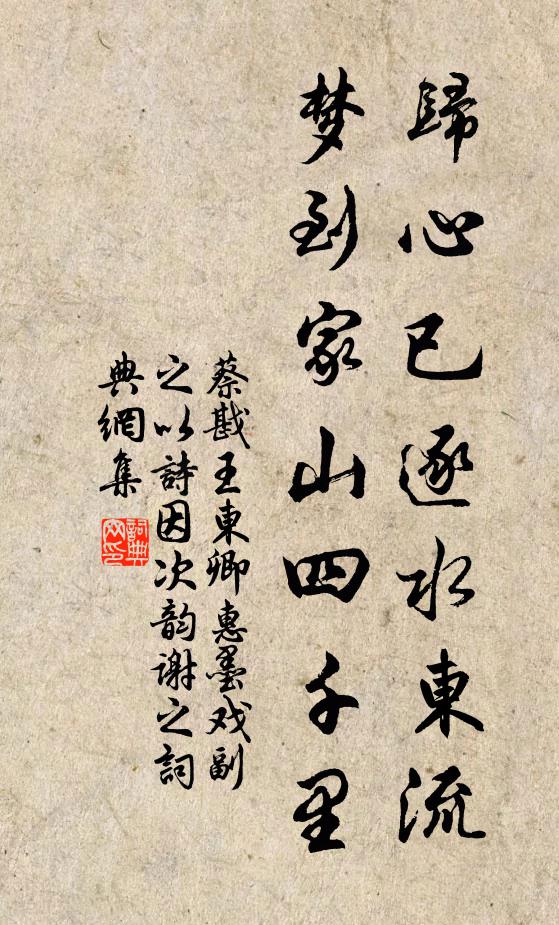 歸心已逐水東流
梦到家山四千里
蔡戡王東卿惠墨戏副
之以詩因次韵谢之詞
典網集
詞典网印